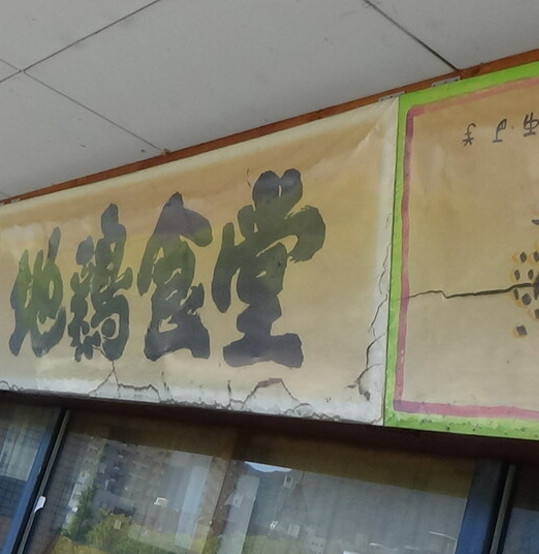 地鶏食堂